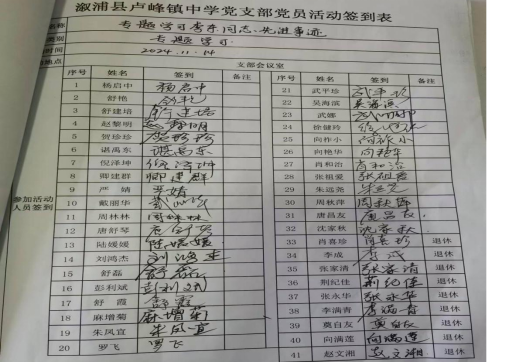 溆浦县卢峰镇中学党支部党员活动签到表
名称 专题学习李东同志先进事迹
类别 专题学习
时间 2024.11.14
地点 支部会议室
序号 姓名 签到 备注 序号 姓名 签到 备注
参加活动
人员签到
1 杨启中 杨启中 21 武平珍 武平珍
2 舒艳 舒艳 22 吴海滨 吴海滨
3 舒建培 舒建培 23 武娜
4 赵黎明 赵黎明 24 徐健玲
5 贺珍珍 贺珍珍 25 向柞小 向柞小
6 谌禹东 谌禹东 26 向艳华 向艳华
7 倪泽坤 倪泽坤 27 肖和冶 肖和冶
8 卿建群 卿建群 28 张祖爱 张祖爱
9 严婧 严婧 29 朱远尧
10 戴丽华 30 周秋萍 周秋萍
11 周林林 周林林 31 唐昌友 唐昌友
12 唐舒琴 唐舒琴 32 沈家秋 沈家秋
13 陆媛媛 陆媛媛 33 肖喜珍 肖喜珍 退休
14 刘鸿杰 刘鸿杰 34 李成 李成 退休
15 舒磊 舒磊 35 张家清 张家清 退休
16 彭利斌 彭利斌 36 荆纪佳 荆纪佳 退休
17 舒霞 舒霞 37 张永华 张永华 退休
18 麻增菊 麻增菊 38 李满青 李满青 退休
19 朱凤宜 朱凤宜 39 奠自友 奠自友 退休
20 罗飞 罗飞 40 向满莲 向满莲 退休
41 赵文湘 赵文湘 退休